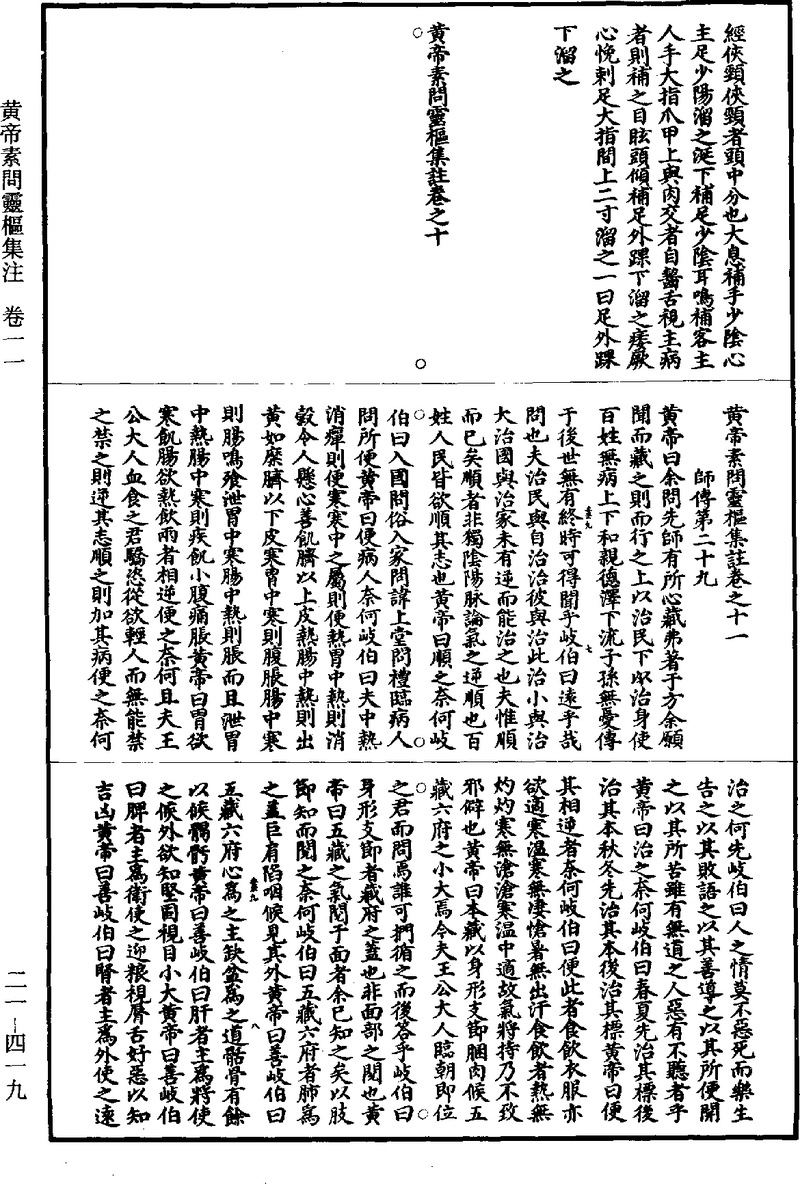 黄帝素問靈樞集注　卷一一
二一－四一九
經俠頸俠頸者頭中分也大息補手少陰心
主足少陽溜之涎下補足少陰耳鳴補客主
人手大指爪甲上與肉交者自齧舌視主病
者則補之目眩頭傾補足外踝下溜之痿厥
心悗刺足大指間上二寸溜之一曰足外踝
下溜之
黄帝素問靈樞集註卷之十
黄帝素問靈樞集註卷之十一
師傳第二十九
黄帝曰余問先師有所心藏弗著于方余願
聞而藏之則而行之上以治民下以治身使
百姓無病上下和親德澤下流子孫無憂傳
于後世無有終時可得聞乎岐伯曰遠乎哉
問也夫治民與自治治彼與治此治小與治
大治國與治家未有逆而能治之也夫惟順
而已矣順者非獨陰陽脉論氣之逆順也百
姓人民皆欲順其志也黄帝曰順之奈何岐
伯曰入國問俗入家問諱上堂問禮臨病人
問所便黄帝曰便病人奈何岐伯曰夫中熱
消癉則便寒寒中之屬則便熱胃中熱則消
穀令人懸心善飢臍以上皮熱腸中熱則出
黄如糜臍以下皮寒胃中寒則腹脹腸中寒
則腸鳴飱泄胃中寒腸中熱則脹而且泄胃
中熱腸中寒則疾飢小腹痛脹黄帝曰胃欲
寒飢腸欲熱飲兩者相逆便之奈何且夫王
公大人血食之君驕恣從欲輕人而無能禁
之禁之則逆其志順之則加其病便之奈何
治之何先岐伯曰人之情莫不惡死而樂生
告之以其敗語之以其善導之以其所便開
之以其所苦雖有無道之人惡有不聽者乎
黄帝曰治之奈何岐伯曰春夏先治其標後
治其本秋冬先治其本後治其標黄帝曰便
其相逆者奈何岐伯曰便此者食飲衣服亦
欲適寒温寒無凄愴暑無出汗食飲者熱無
灼灼寒無滄滄寒温中適故氣將持乃不致
邪僻也黄帝曰本藏以身形支節䐃肉候五
藏六府之小大焉今夫王公大人臨朝即位
之君而問焉誰可捫循之而後答乎岐伯曰
身形支節者藏府之蓋也非面部之閱也黄
帝曰五藏之氣閱于面者余已知之矣以肢
節知而閱之奈何岐伯曰五藏六府者肺爲
之蓋巨肩陷咽候見其外黄帝曰善岐伯曰
五藏六府心爲之主缺盆爲之道䯏骨有餘
以候𩩲骬黄帝曰善岐伯曰肝者主爲將使
之候外欲知堅固視目小大黄帝曰善岐伯
曰脾者主爲衛使之迎粮視唇舌好惡以知
吉凶黄帝曰善岐伯曰腎者主爲外使之遠